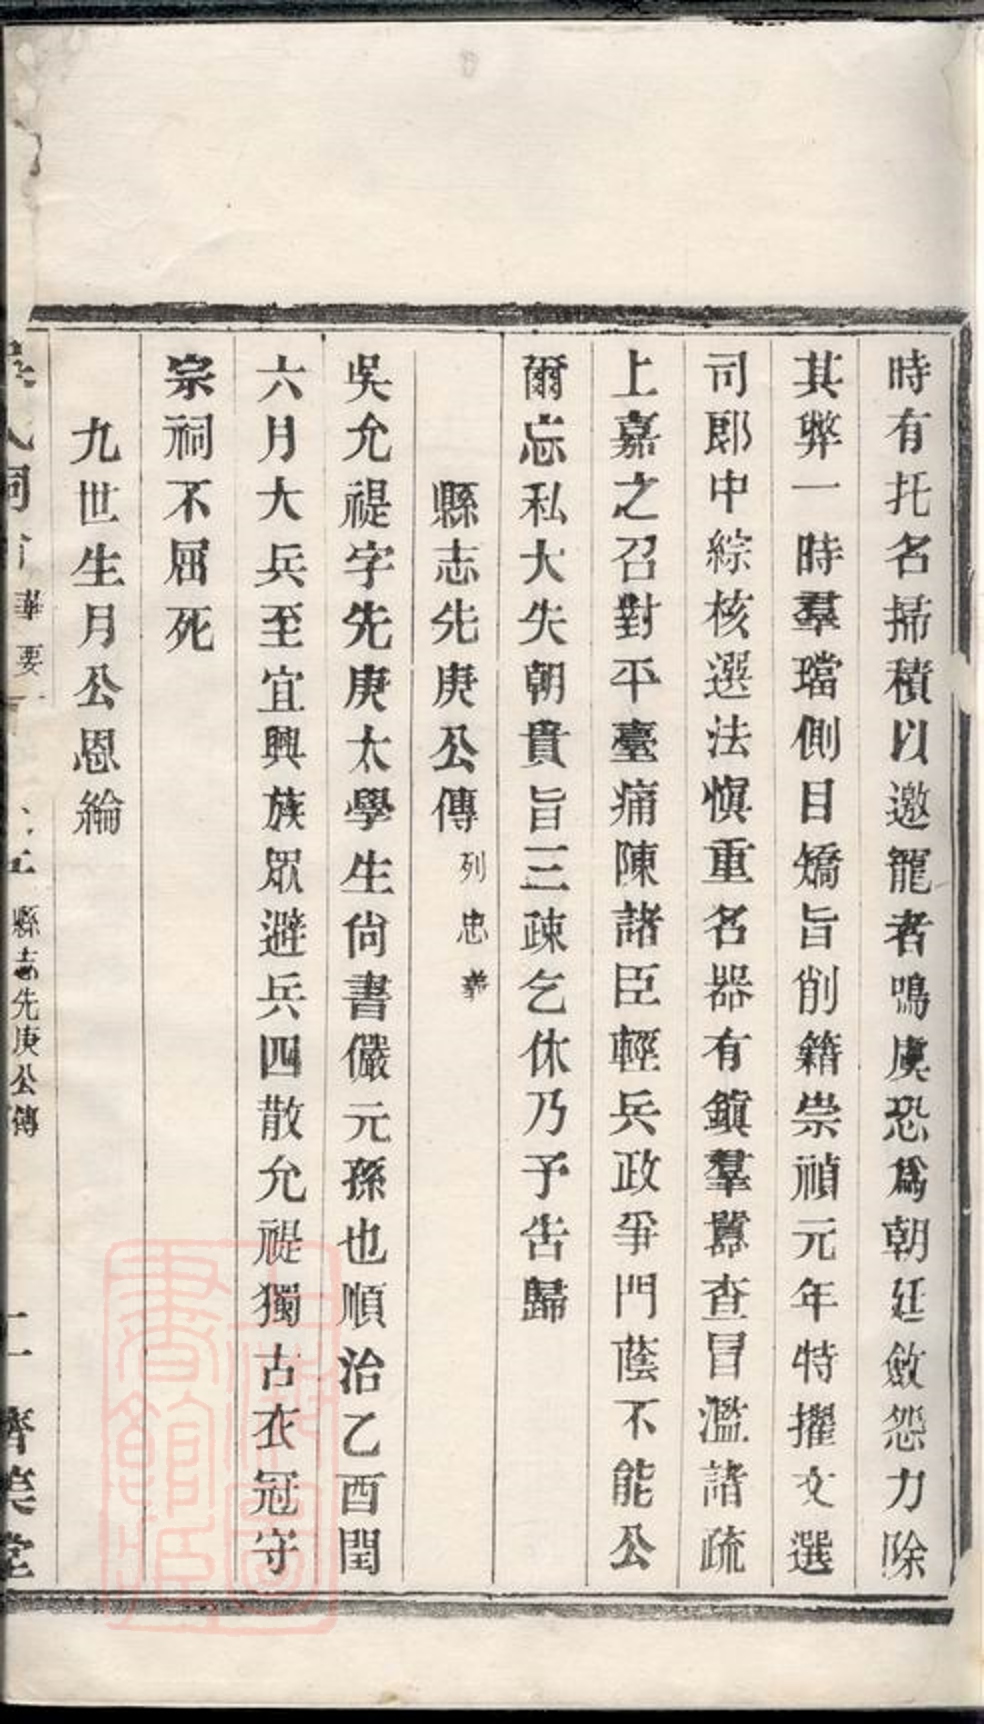 時有托名掃積以邀寵者鳴虞恐爲朝廷斂怨力除
其弊一時羣璫側目矯旨削籍崇禎元年特擢文選
司郎中綜核選法愼重名器有鎭羣囂查冒濫諸疏
上嘉之召對平臺痛陳諸臣輕兵政爭門蔭不能公
爾忘私大失朝貴旨三疎乞休乃予告歸
縣志先庚公傳 列忠義
吳允禔字先庚太學生尙書儼元孫也順治乙酉閏
六月大兵至宜興族眾避兵四散允禔獨古衣冠守
宗祠不屈死
九世生月公恩綸
縣志先庚公傳
濟美堂